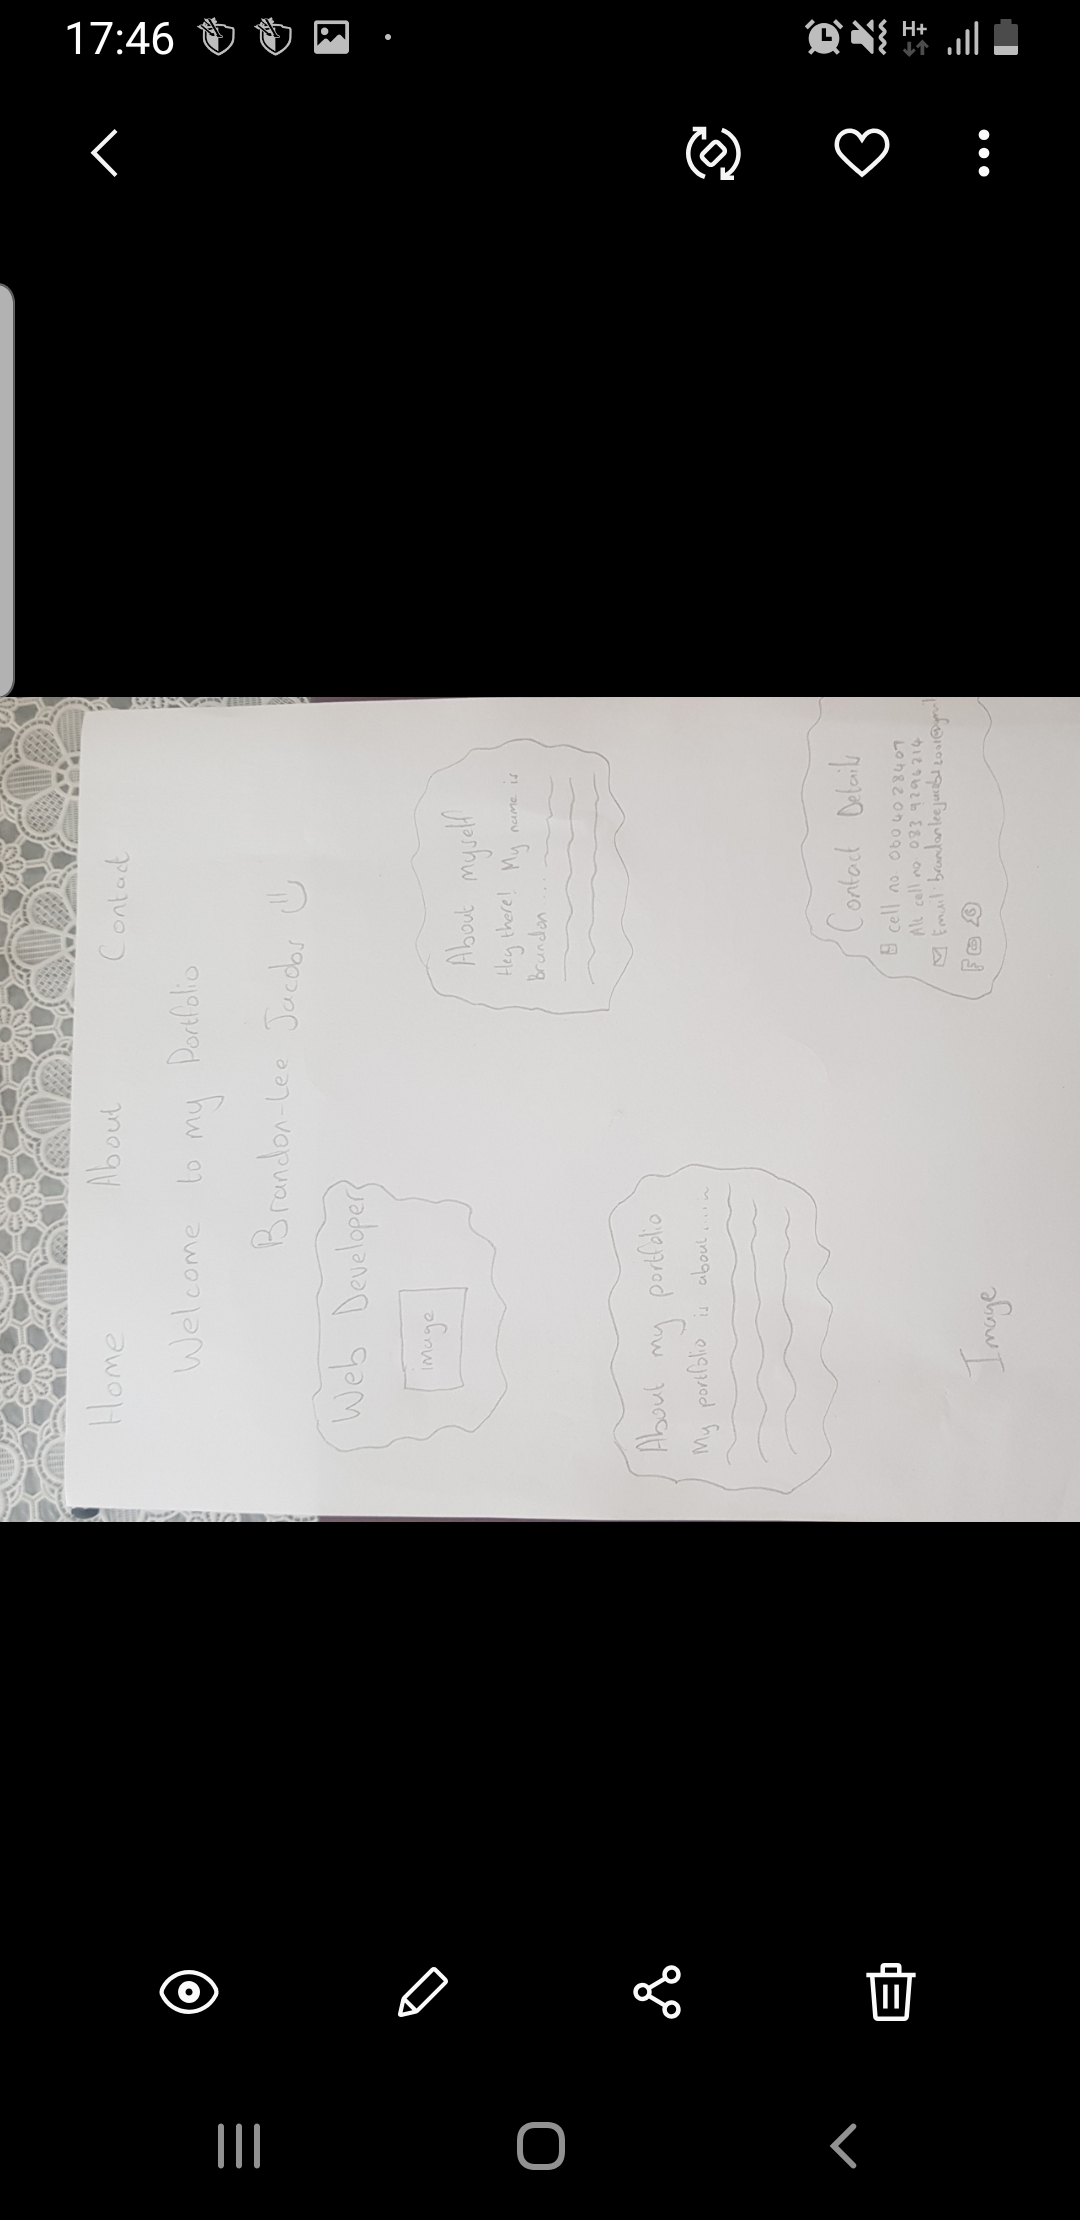 17:46
H+
Home About Contact
Welcome to my Portfolio
Brandon-Lee Jacobs
Web Developer
image
About myself
Hey there! My name is
Brandon....
About my portfolio
My portfolio is about.....
Contact Details
cell no 0604028407
Alt cell no 083 9296214
Email:
Image